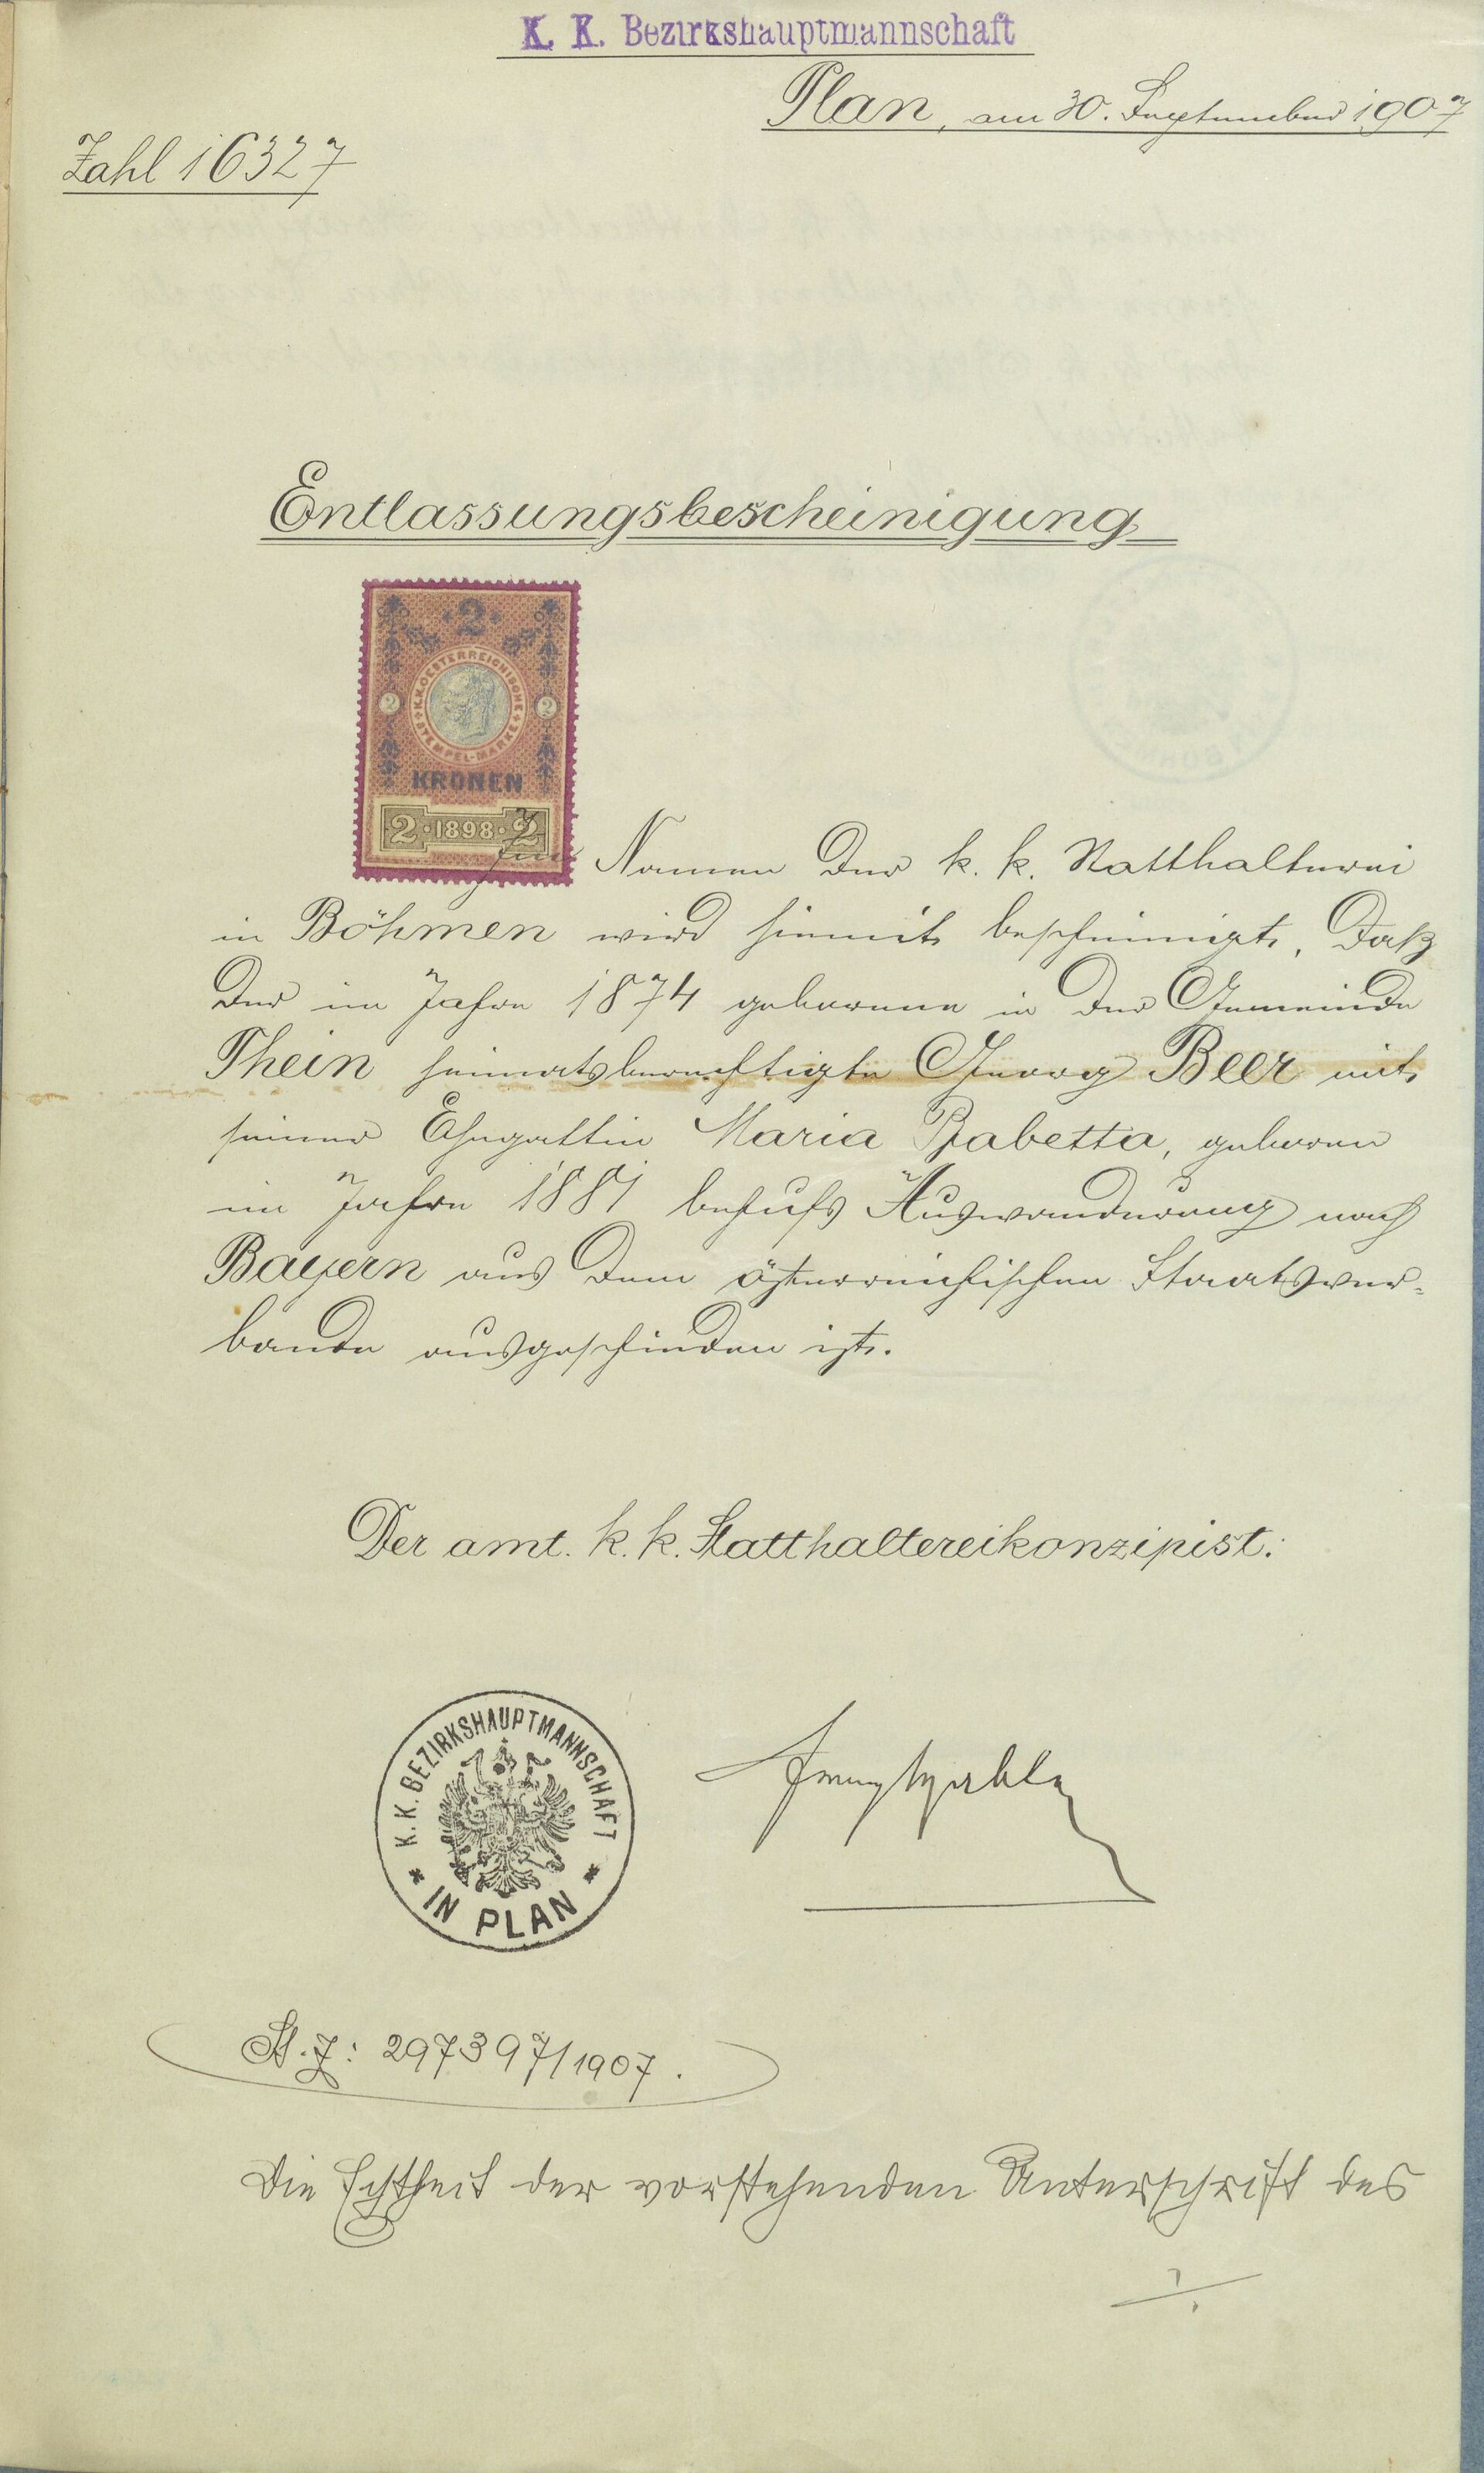 K. K. Bezirkshauptmannschaft
Plan, am 30. September 1907
Zahl 16327
Entlassungsbescheinigung
2
K.K. OESTERREICHISCHE
STEMPEL-MARKE
2 2
KRONEN
2 · 1898 · 2
Im Namen der k. k. Statthalterei
in Böhmen wird hiemit bescheinigt, daß
der im Jahre 1874 geborene in der Gemeinde
Thein heimatsberechtigte Georg Beer mit
seiner Ehegattin Maria Babetta, geboren
im Jahre 1881 behufs Auswanderung nach
Bayern aus dem österreichischen Staatsver-
bande ausgeschieden ist.
Der amt. k. k. Statthaltereikonzipist:
K. K. BEZIRKSHAUPTMANNSCHAFT
* IN PLAN *
St. Z: 297397/1907.
Die Echtheit der vorstehenden Unterschrift des